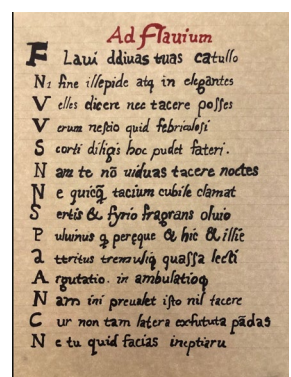 Ad Flauium
F Laui ddiuas tuas catullo
Ni ſine illepide atq in elegantes
V elles dicere nec tacere poſſes
V erum neſcio quid febriculoſi
S corti diligis hoc pudet fateri.
N am te nō uiduas tacere noctes
N e quicq̄ tacium cubile clamat
S ertis & ſyrio fragrans oliuo
P uluinus q peręque & hic & illic
a ttritus tremuliq quaſſa lecti
A rgutatio. in ambulatioq
N am ini preualet iſto nil tacere
C ur non tam latera exfututa pādas
N e tu quid facias ineptiaru